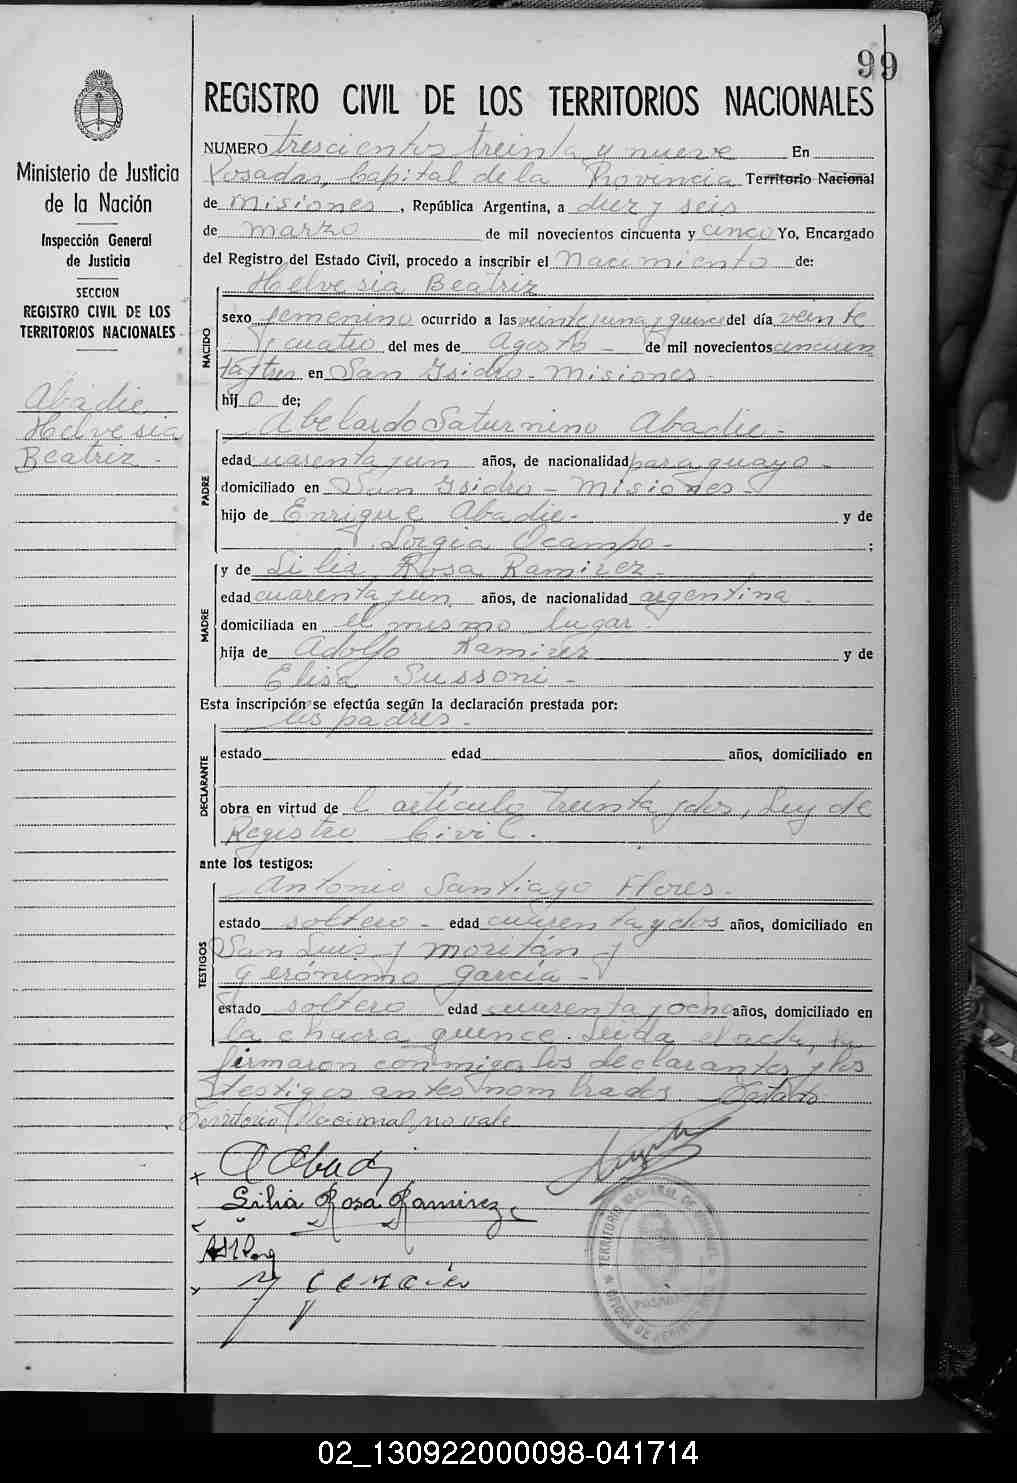 99
REGISTRO CIVIL DE LOS TERRITORIOS NACIONALES
Ministerio de Justicia
de la Nación
Inspección General
de Justicia
SECCION
REGISTRO CIVIL DE LOS
TERRITORIOS NACIONALES
Abadie
Helvesia
Beatriz -
NUMERO trescientos treinta y nueve En
Posadas, Capital de la Provincia Territorio Nacional
de Misiones, República Argentina, a diez y seis
de marzo de mil novecientos cincuenta y cinco Yo, Encargado
del Registro del Estado Civil, procedo a inscribir el Nacimiento de:
Helvesia Beatriz
NACIDO
sexo femenino ocurrido a las veintiuna y quince del día veinte
y cuatro del mes de Agosto - de mil novecientos cincuen
ta y tres en San Isidro - Misiones -
hijo de;
Abelardo Saturnino Abadie -
PADRE
edad cuarenta y un años, de nacionalidad paraguayo -
domiciliado en San Isidro - Misiones -
hijo de Enrique Abadie - y de
Sorgia Ocampo - ;
y de Silia Rosa Ramirez -
MADRE
edad cuarenta y un años, de nacionalidad argentina -
domiciliada en el mismo lugar.
hija de Adolfo Ramirez y de
Elisa Sussoni -
Esta inscripción se efectúa según la declaración prestada por:
los padres -
DECLARANTE
estado edad años, domiciliado en
obra en virtud de l artículo treinta y dos, Ley de
Registro Civil.
ante los testigos:
Antonio Santiago Flores -
TESTIGOS
estado soltero - edad cuarenta y dos años, domiciliado en
San Luis y Moritán y
Gerónimo García -
estado soltero edad cuarenta y ocho años, domiciliado en
la chacra quince. Leida el acta, la
firmaron conmigo los declarantes y los
testigos antes nombrados. Testado
Territorio Nacional, no vale
A Abadi
Silia Rosa Ramirez
y Garcia
TERRITORIO NACIONAL DE MISIONES
POSADAS
02_130922000098-041714